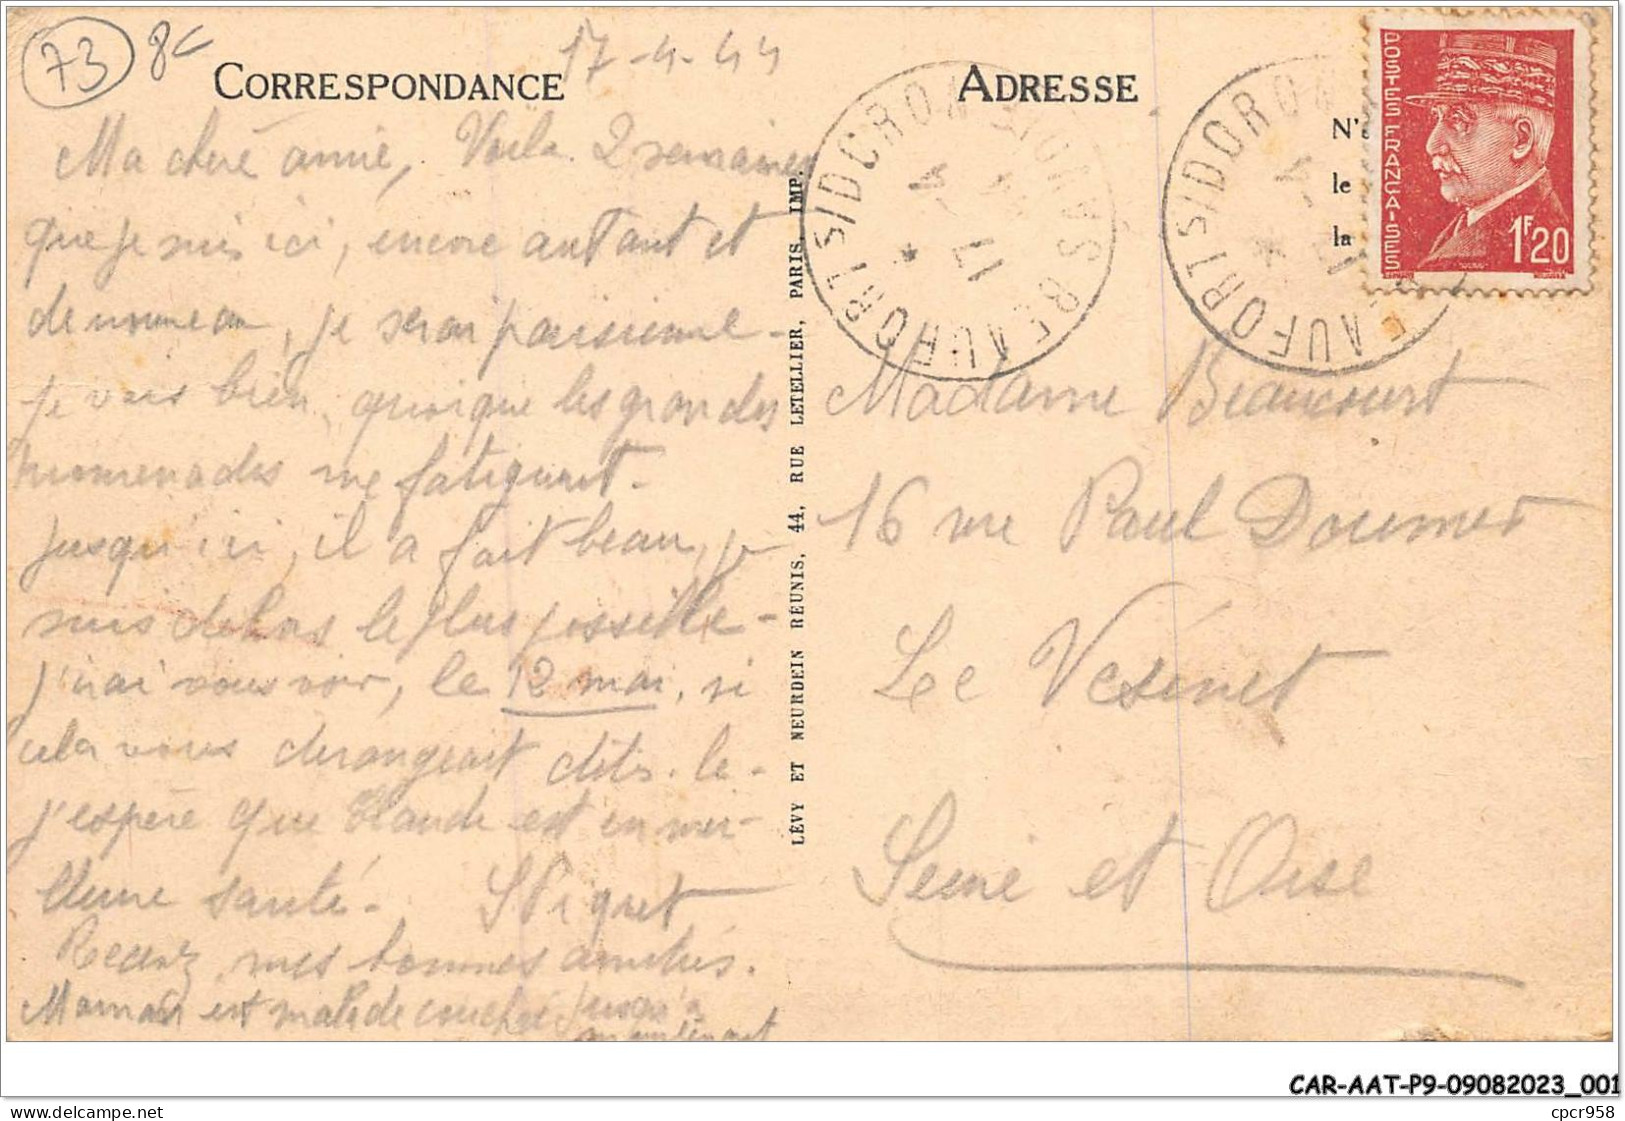 73 8c
17-4-44
CORRESPONDANCE
Ma chère amie, Voilà 2 semaines
que je suis ici, encore autant et
de nouveau, je serai parisienne -
je vais bien, quoique les grandes
promenades me fatiguent.
Jusqu'ici, il a fait beau, je
suis dehors le plus possible -
J'irai vous voir, le 12 mai, si
cela vous dérangeait dites-le -
J'espère que Claude est en meil-
leure santé -
Recevez mes bonnes amitiés.
Maman est malade couchée jusqu'à
maintenant
LÉVY ET NEURDEIN RÉUNIS, 44, RUE LETELLIER, PARIS, IMP.
ADRESSE
N'
le
la
POSTES FRANÇAISES
1F20
BEAUFORT S/ DORON
17 -4 44
Madame Beaucourt
16 rue Paul Doumer
Le Vésinet
Seine et Oise
CAR-AAT-P9-09082023_001
delcampe.net
cpcr958